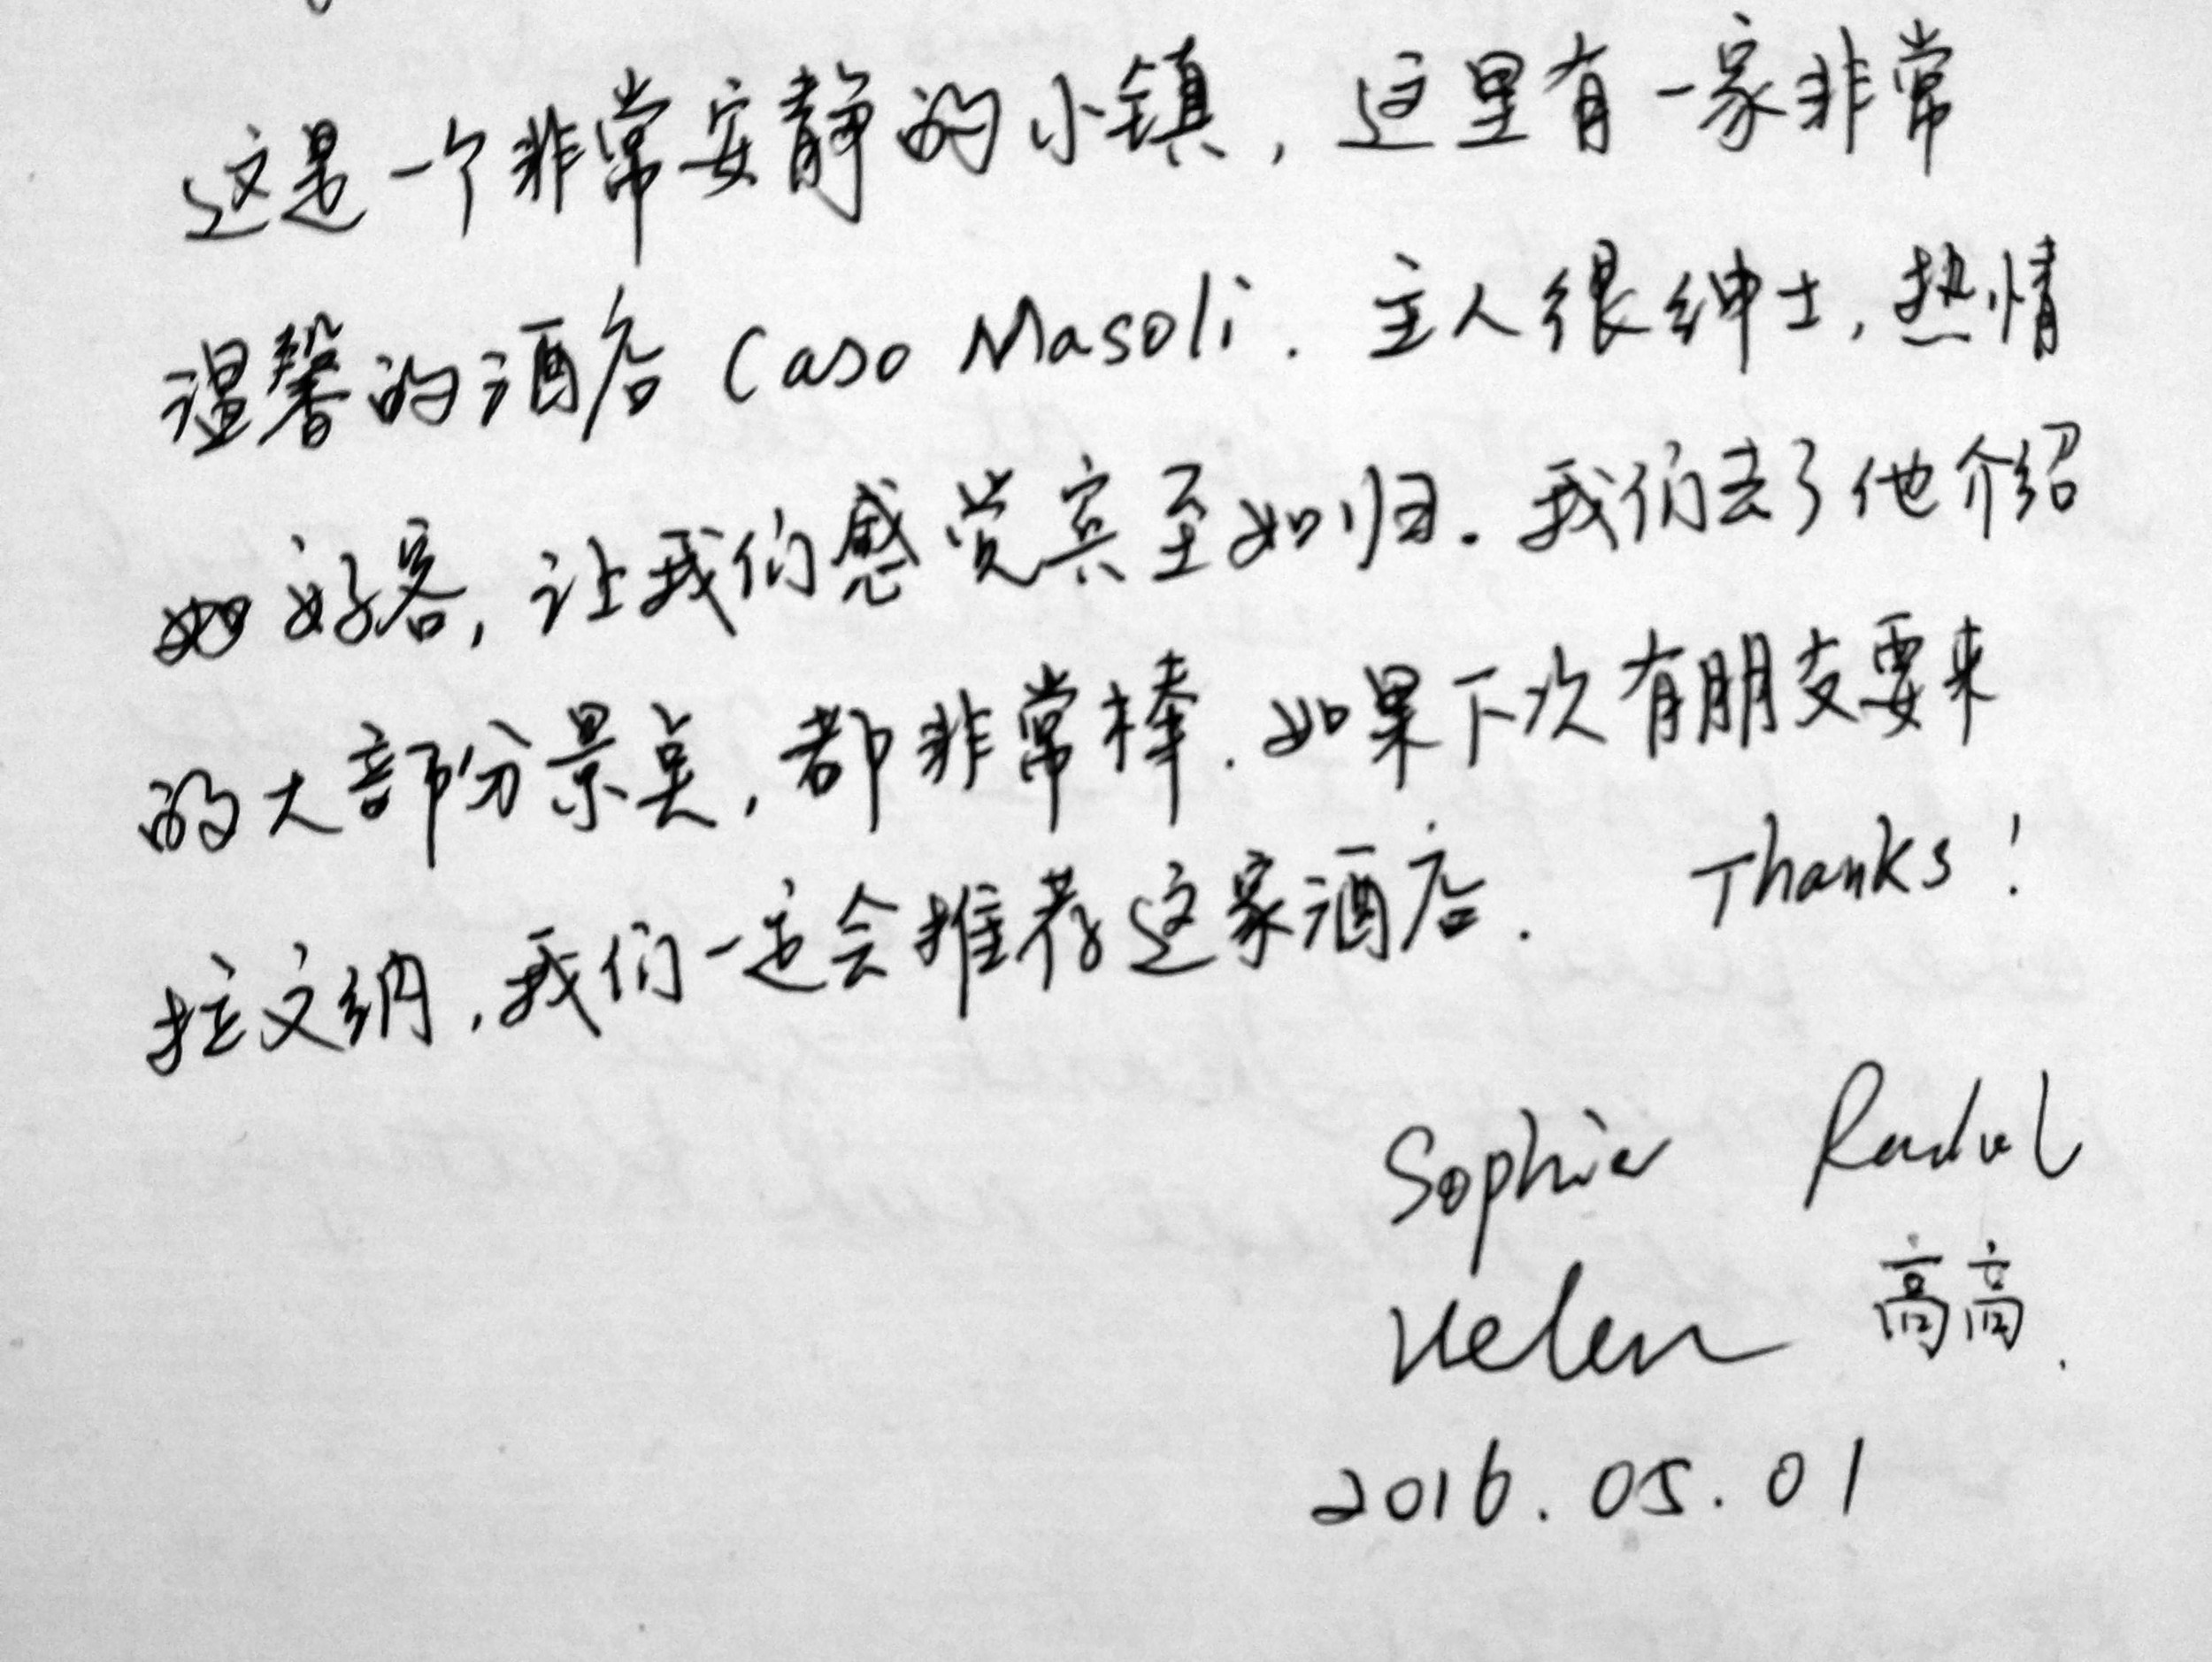 这是一个非常安静的小镇，这里有一家非常
温馨的酒店 Caso Masoli. 主人很绅士，热情
好客，让我们感觉宾至如归。我们去了他介绍
的大部分景点，都非常棒.如果下次有朋友要来
拉文纳，我们一定会推荐这家酒店. Thanks!
Sophia
Helen 高高.
2016.05.01